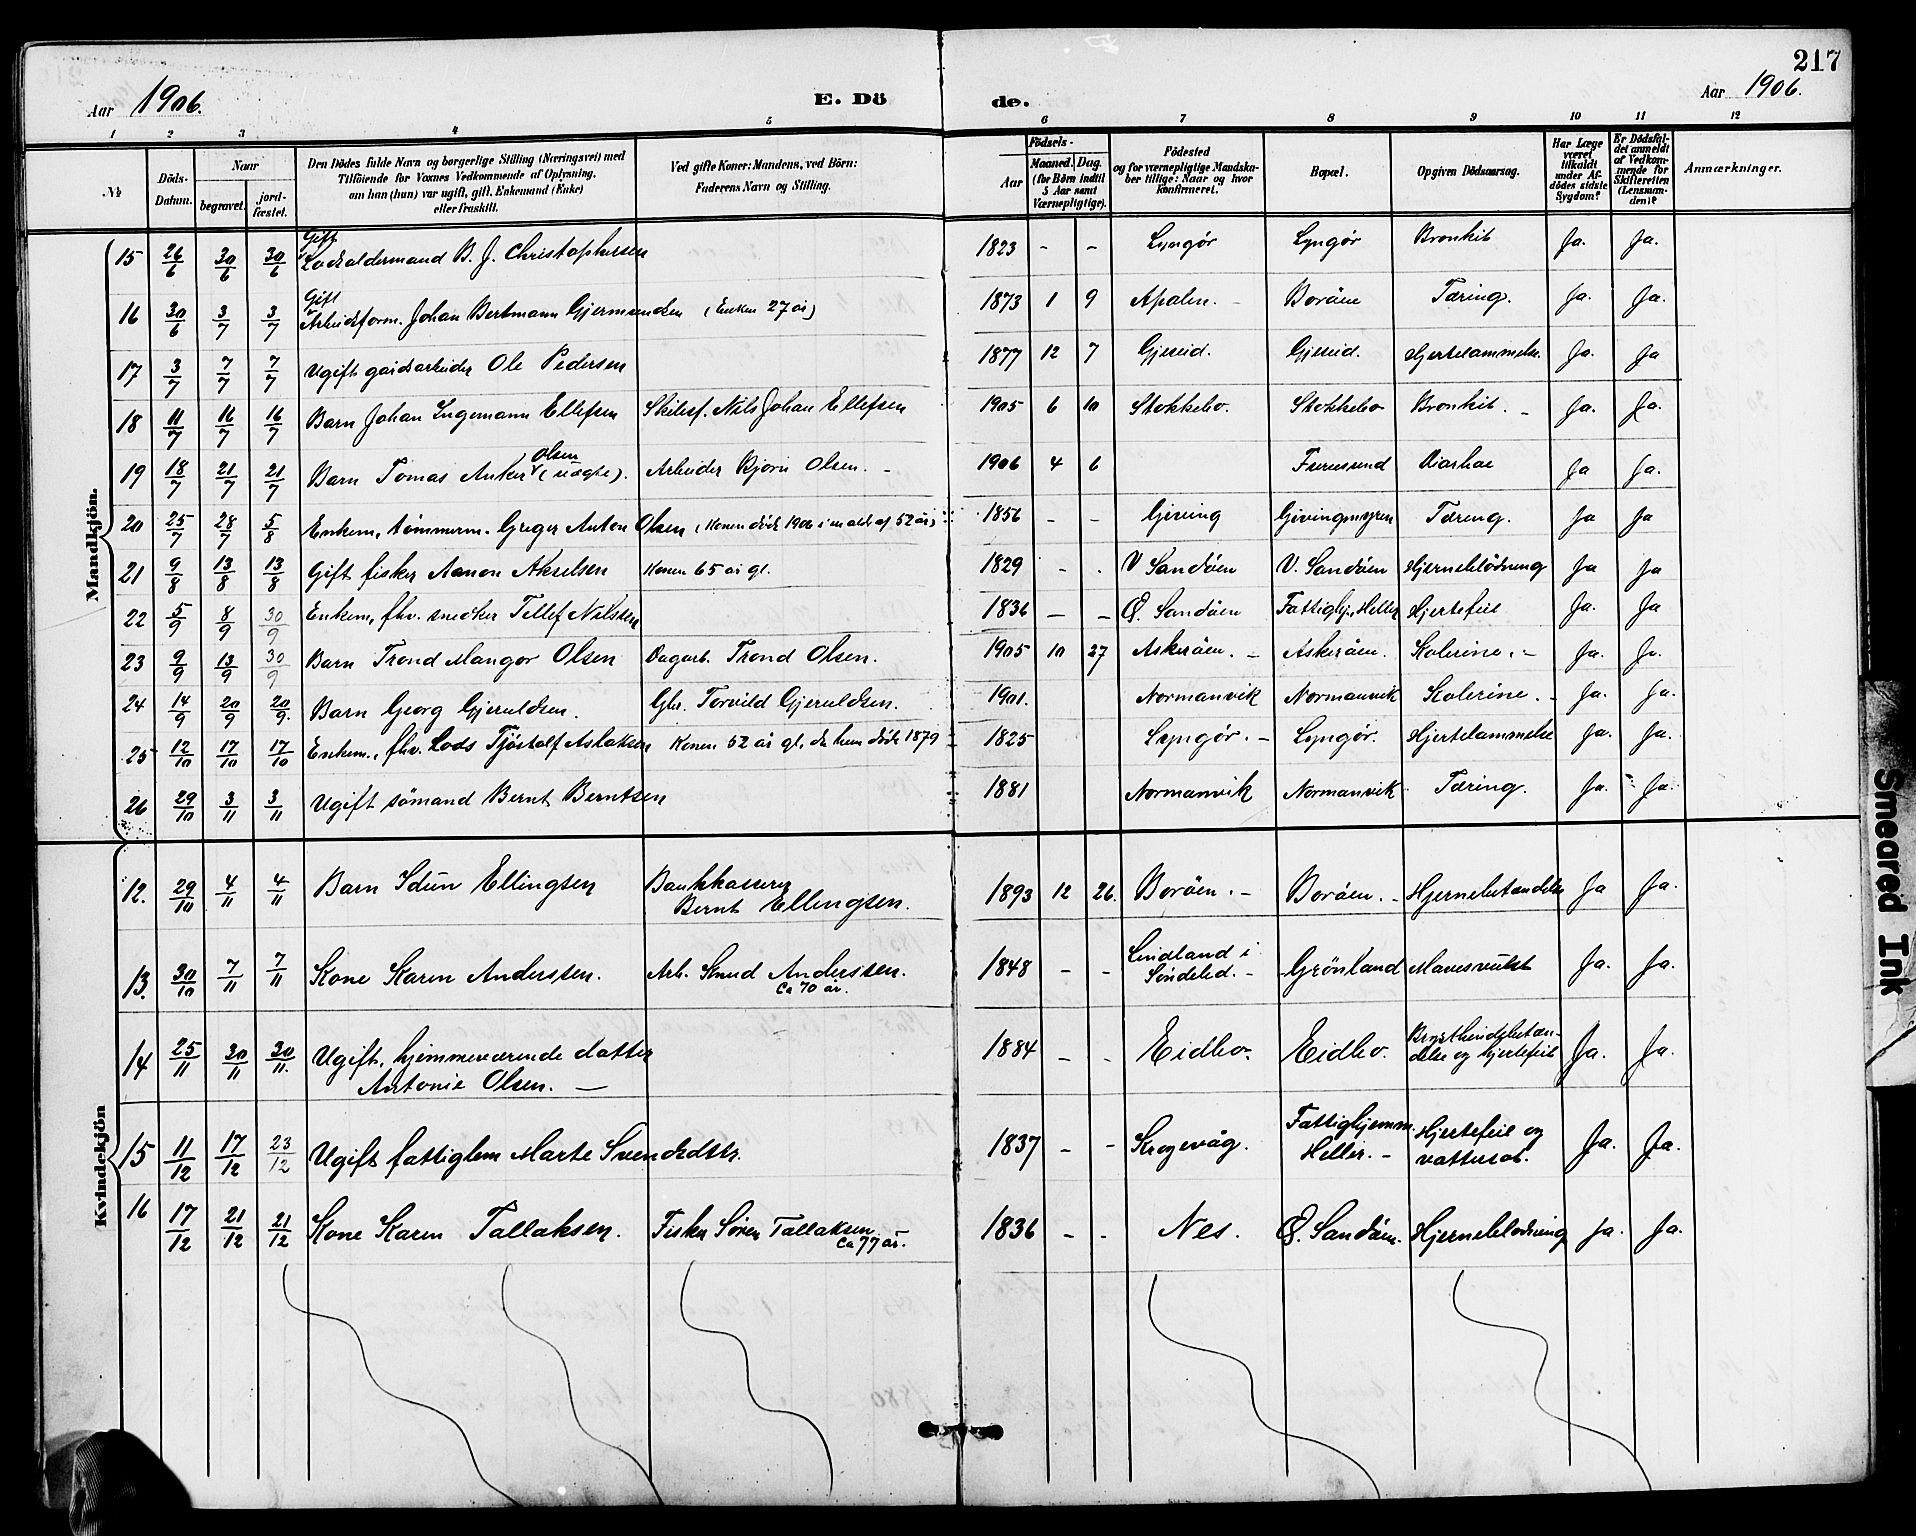 217
Aar 1906. E. Dö de. Aar 1906.
1 2 3 4 5 6 7 8 9 10 11 12
№
Döds-
Datum.
Naar
begravet.
jord-
fæstet.
Den Dödes fulde Navn og borgerlige Stilling (Næringsvei) med
Tilföiende for Voxnes Vedkommende af Oplysning,
om han (hun) var ugift, gift, Enkemand (Enke)
eller fraskilt.
Ved gifte Koner: Mandens, ved Börn:
Faderens Navn og Stilling.
Födsels-
Aar
Maaned. Dag.
(for Börn indtil
5 Aar samt
Værnepligtige).
Födested
og for værnepligtige Mandska-
ber tillige: Naar og hvor
konfirmeret.
Bopæl.
Opgiven Dödsaarsag.
Har Læge
været
tilkaldt
under Af-
dödes sidste
Sygdom?
Er Dödsfal-
det anmeldt
af Vedkom-
mende for
Skifteretten
(Lensman-
den)?
Anmærkninger.
Mandkjön.
Gift
15 26/6 30/6 30/6 Lodsoldermand B. J. Christophersen 1823 - - Lyngör Lyngör Bronkit Ja. Ja.
Gift
16 30/6 3/7 3/7 Arbeidsform. Johan Bertmann Gjermundsen (Enken 27 år) 1873 1 9 Apalen. - Boröen Tæring. Ja. Ja.
17 3/7 7/7 7/7 Ugift gårdsarbeider Ole Pedersen 1877 12 7 Gjeseid. Gjeseid. Hjertelammelse. Ja. Ja
18 11/7 16/7 16/7 Barn Johan Ingemann Ellefsen Skibsf. Nils Johan Ellefsen 1905 6 10 Stokkebo. Stokkebo Bronkit. - Ja. Ja.
Olsen
19 18/7 21/7 21/7 Barn Tomas Anker (uægte). Arbeider Bjørn Olsen. - 1906 4 6 Furusund Diarhæ Ja Ja.
20 25/7 28/7 5/8 Enkem. tömmerm. Greger Anton Olsen (Konen döde 1906 i en ald. af 52 år) 1856 - - Giving Givingmyren Tæring. Ja Ja
21 9/8 13/8 13/8 Gift fisker Aanon Akselsen Konen 65 år gl. 1829 - . V Sandöen V. Sandöen Hjernebödning Ja Ja
22 5/9 8/9 30/9 Enkem. fhv. snedker Tellef Nilssen 1836 - - Ö. Sandöen Fattighj. Heller Hjertefeil Ja. Ja
23 9/9 13/9 30/9 Barn Trond Mangor Olsen Dagarb. Trond Olsen. 1905 10 27 Askeröen. - Askeröen. Kolerine. - Ja. Ja.
24 14/9 20/9 20/9. Barn Georg Gjeruldsen. Gbr. Torvild Gjeruldsen. 1901. Normanvik Normanvik Kolerine. - Ja. Ja.
25 12/10 17/10 17/10 Enkem., fhv. Lods Tjöstolf Aslaksen Konen 52 år gl. da hun döde 1879 1825 Lyngör. - Lyngör. Hjertelammelse Ja. Ja.
26 29/10 3/11 3/11 Ugift sömand Bernt Berntsen 1881 Normanvik Normanvik Tæring. Ja. Ja.
Kvindekjön
12. 29/10 4/11 4/11 Barn Idun Ellingsen Bankkasserer
Bernt Ellingsen. 1893 12 26. Boröen. - Boröen. - Hjernebetændelse Ja Ja.
13. 30/10 7/11 7/11 Kone Karen Anderssen. Arb. Knud Anderssen.
Ca 70 år. 1848 - - Lindland i
Söndeled. - Grönland Mavesvulst Ja. Ja.
14 25/11 30/11 30/11. Ugift, hjemmeværende datter
Antonie Olsen. - 1884 - - Eidbo. Eidbo. Brysthindebetæn-
delse og hjertefeil Ja. Ja.
15 11/12 17/12 23/12 Ugift fattiglem Marte Svendsdtr. 1837 - - Krogevåg. Fattighjemm.
Heller. - Hjertefeil og
vattersot. Ja. Ja.
16 17/12 21/12 21/12 Kone Karen Tallaksen. Fisker Sören Tallaksen
Ca 77 år. 1836 - - Nes. Ö. Sandöen. Hjerneblödning Ja. Ja.
Smeared Ink